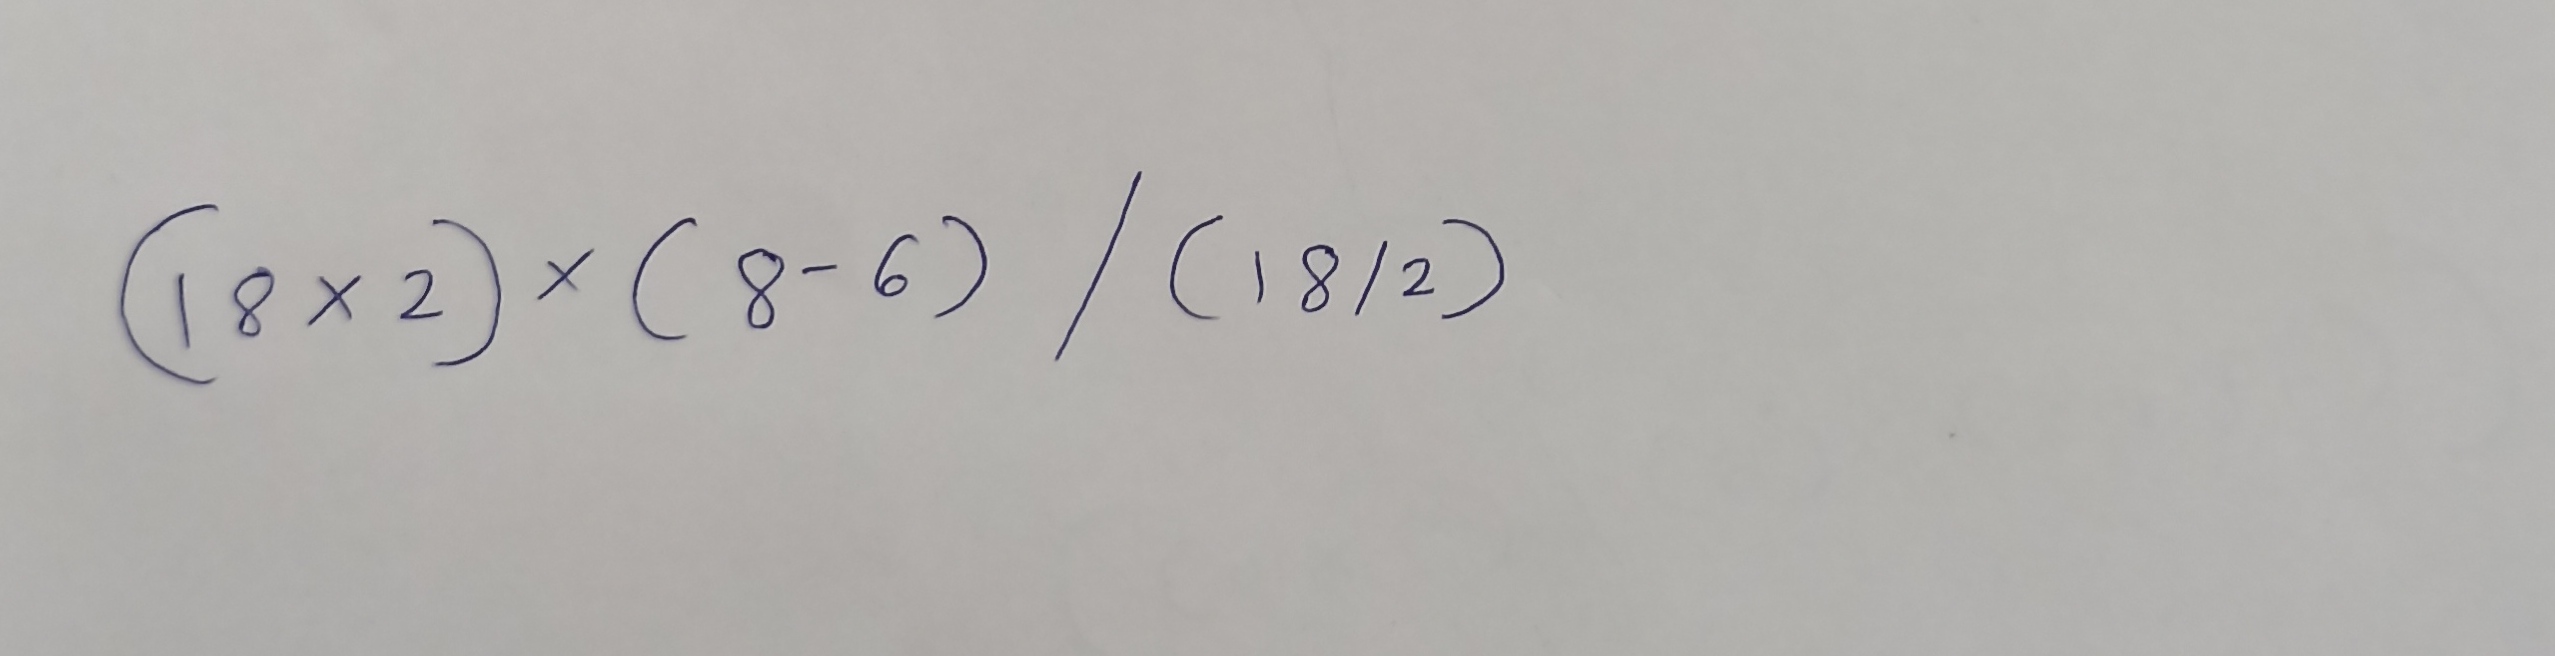 (18 × 2) × (8 - 6) / (18/2)